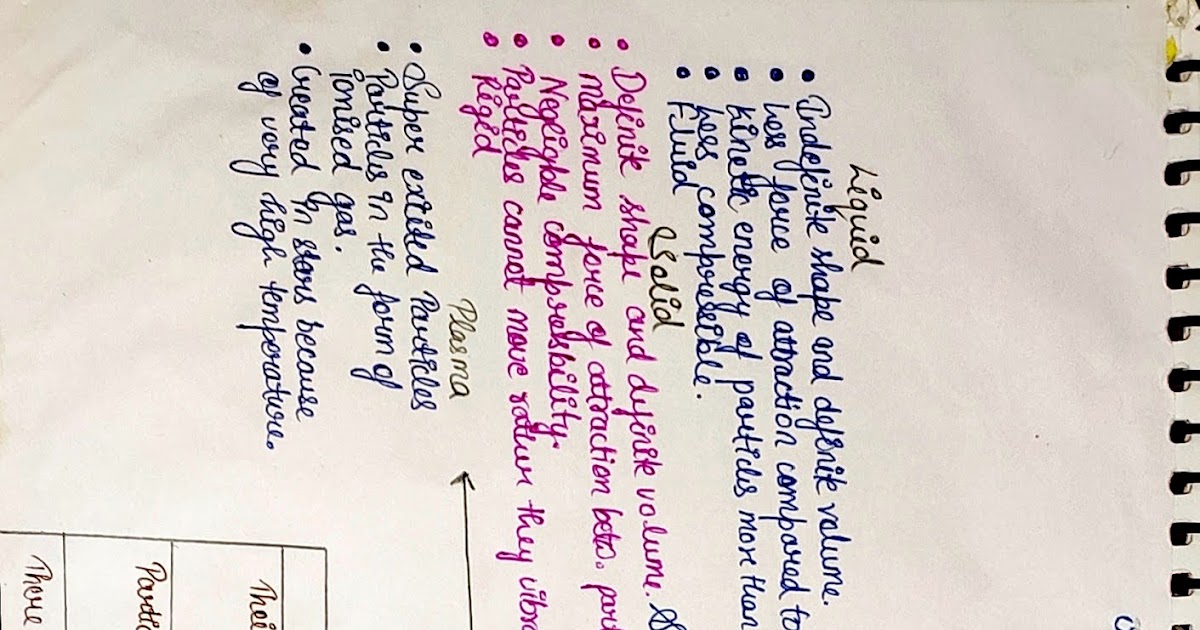 Liquid
• Indefinite shape and definite volume.
• Less force of attraction compared to
• Kinetic energy of particles more than
• Less compressible.
• Fluid
Solid
• Definite shape and definite volume.
• Maximum force of attraction betw. part
• Negligible compressibility.
• Particles cannot move rather they vibra
• Rigid
Plasma
• Super exited Particles
• Particles in the form of
ionised gas.
• Created in stars because
of very high temperature.
Thei
Partic
There